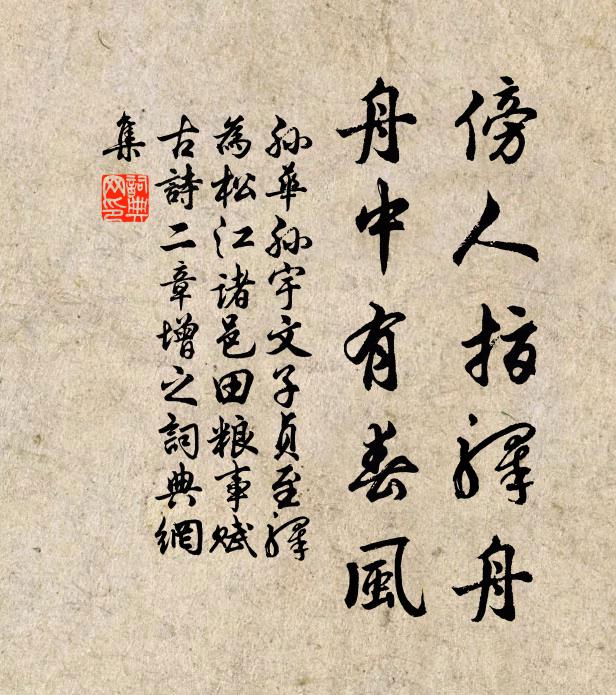 傍人指驛舟
舟中有春風
孫華孫宇文子貞至驛
為松江諸邑田粮事賦
古詩二章增之詞典網
集
詞典
网印